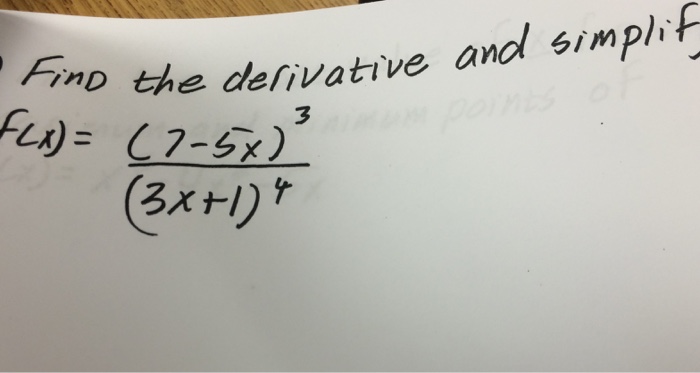 Find the derivative and simplify
f(x) = (7-5x)³
(3x+1)⁴